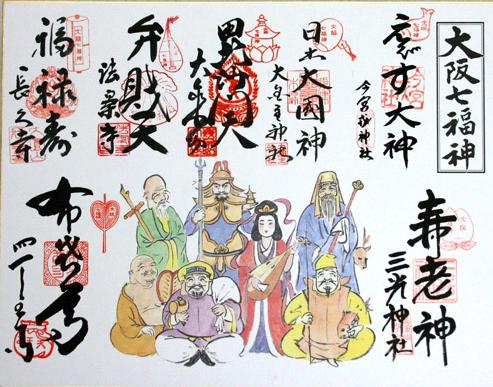 大阪七福神
ゑびす大神
今宮戎神社
日本大国神
大国主神社
毘沙門天
大乗坊
弁財天
法案寺
福禄寿
長久寺
寿老神
三光神社
布袋尊
四天王寺